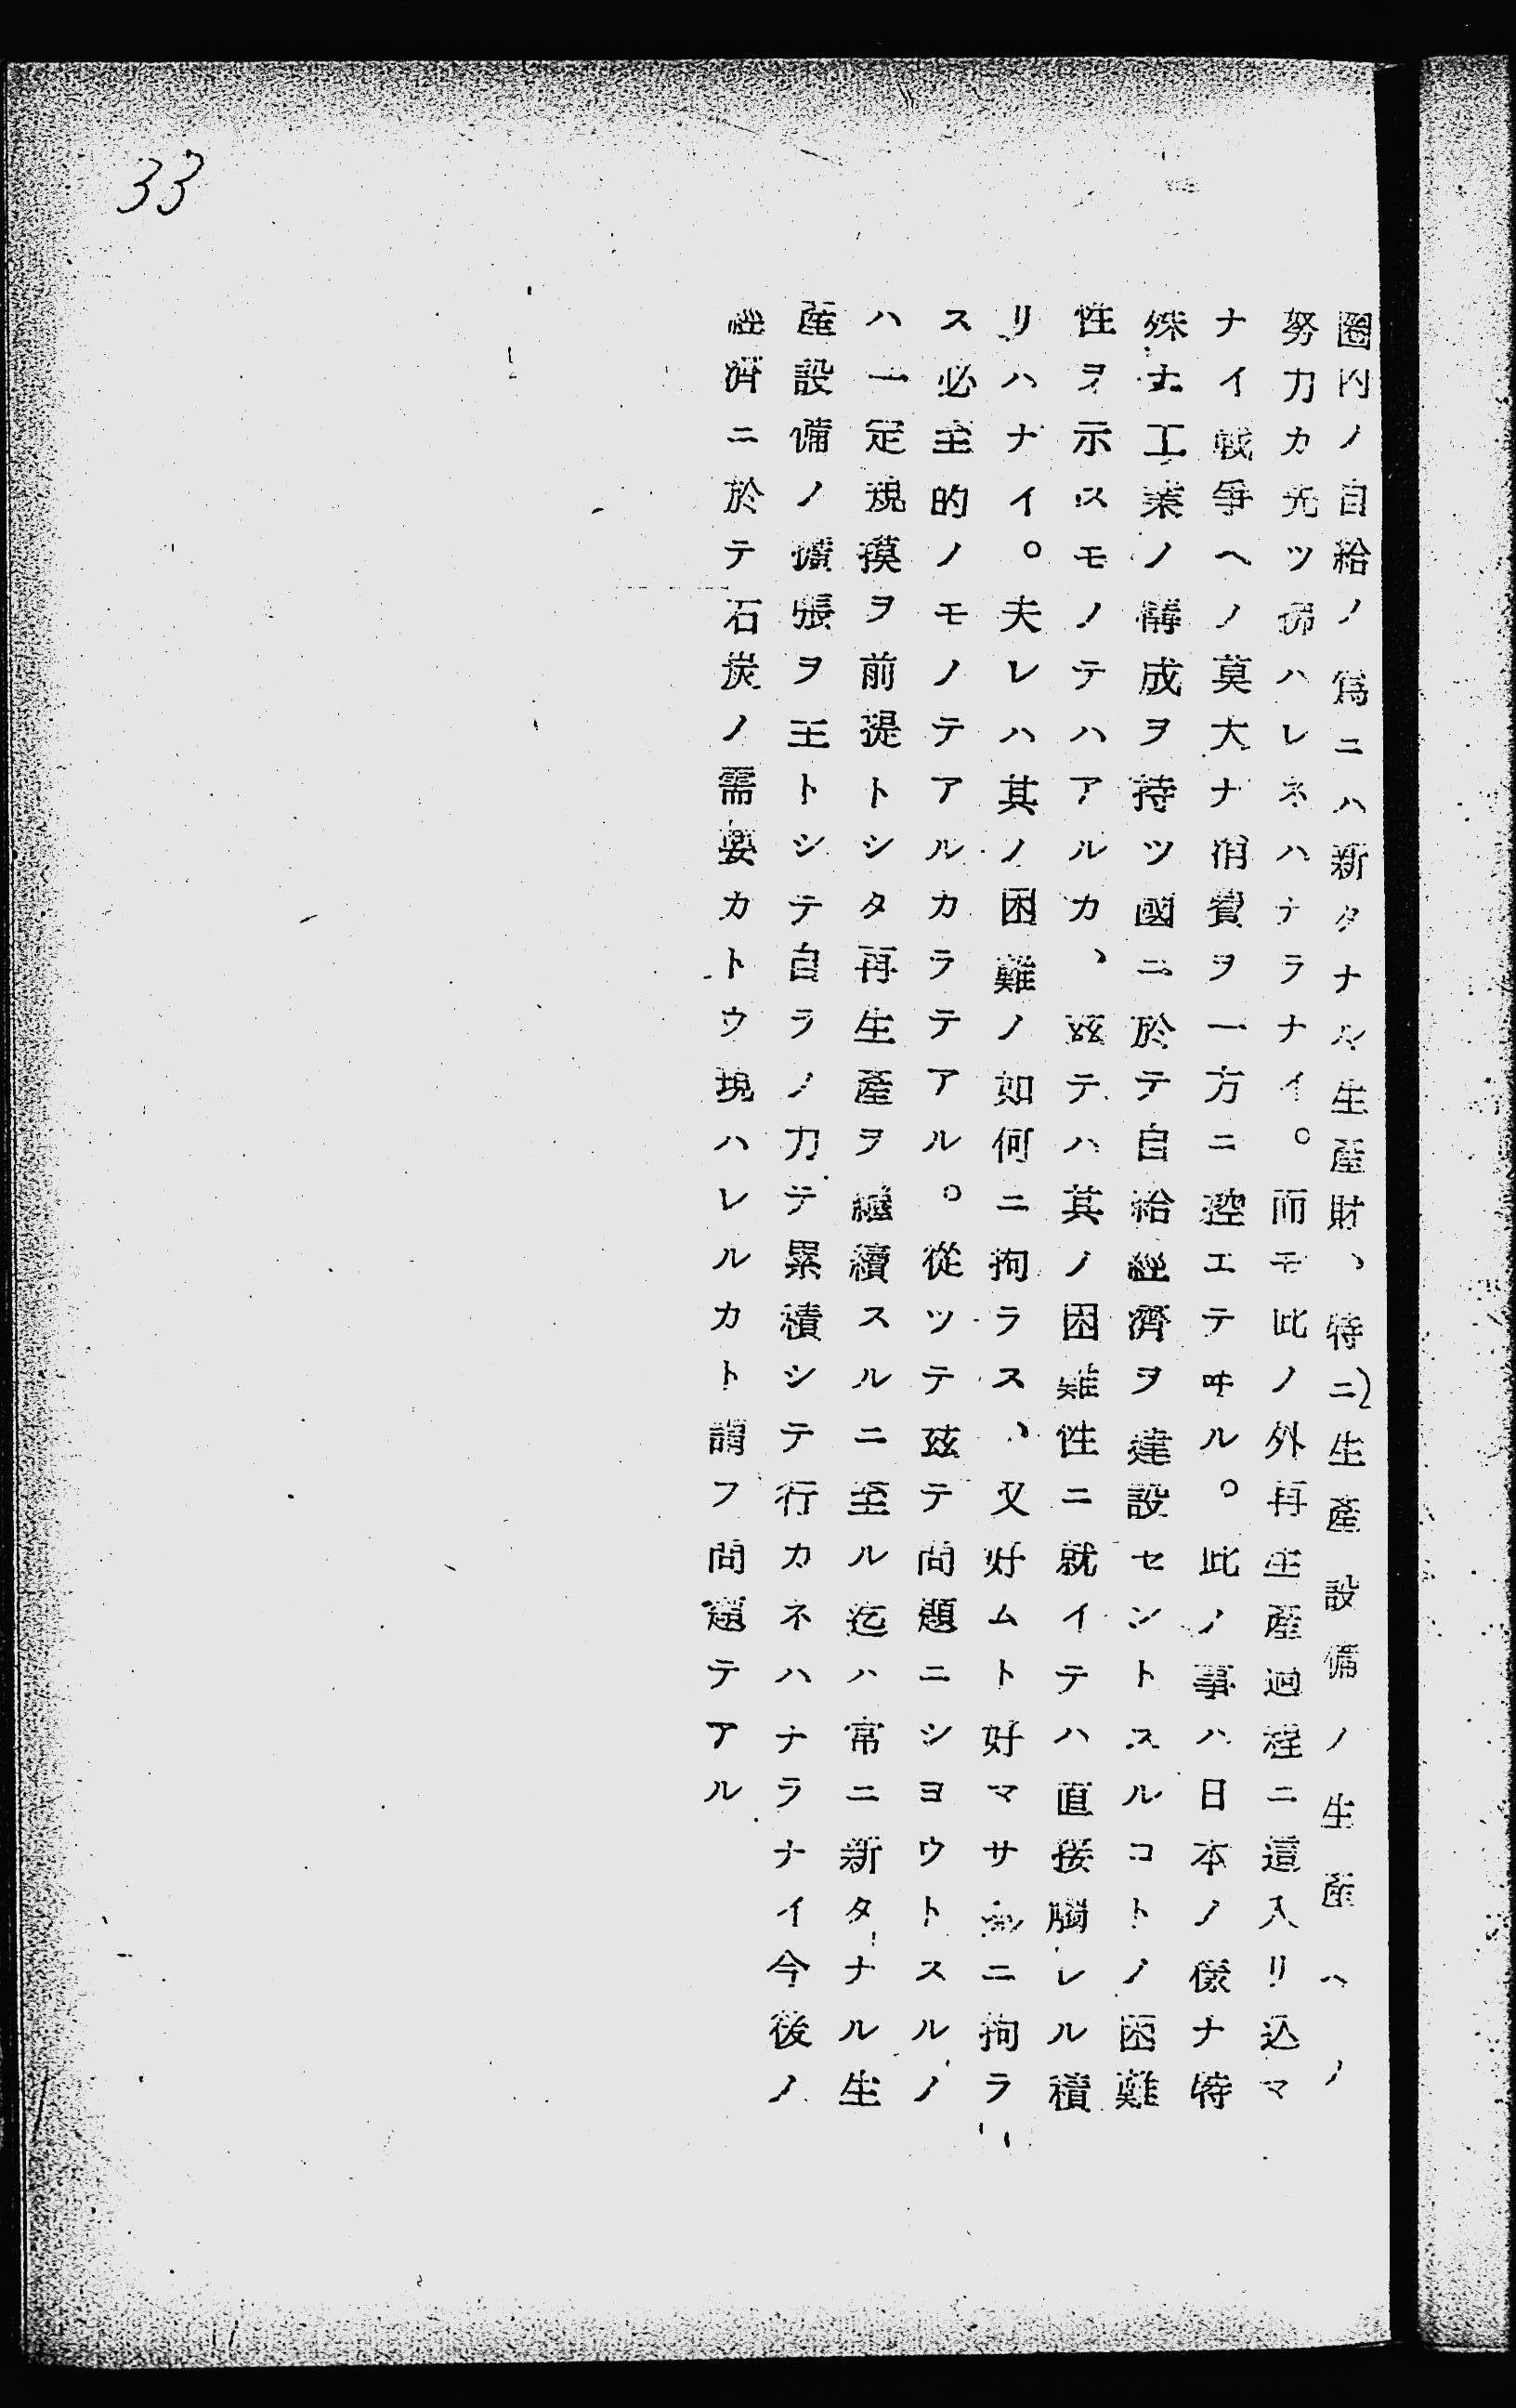 33
圏内ノ自給ノ爲ニハ新タナル生産財、特ニ生産設備ノ生産ヘノ
努力カ先ツ拂ハレネハナラナイ。而モ此ノ外再生産過程ニ這入リ込マ
ナイ戰爭ヘノ莫大ナ消費ヲ一方ニ控エテヰル。此ノ事ハ日本ノ樣ナ特
殊ナ工業ノ構成ヲ持ツ國ニ於テ自給經濟ヲ建設セントスルコトノ困難
性ヲ示スモノテハアルカ、玆テハ其ノ困難性ニ就イテハ直接觸レル積
リハナイ。夫レハ其ノ困難ノ如何ニ拘ラス、又好ムト好マサルニ拘ラ
ス必至的ノモノテアルカラテアル。從ツテ玆テ問題ニシヨウトスルノ
ハ一定規模ヲ前提トシタ再生産ヲ繼續スルニ至ル迄ハ常ニ新タナル生
産設備ノ擴張ヲ主トシテ自ラノ力テ累積シテ行カネハナラナイ今後ノ
經濟ニ於テ石炭ノ需要カトウ現ハレルカト謂フ問題テアル